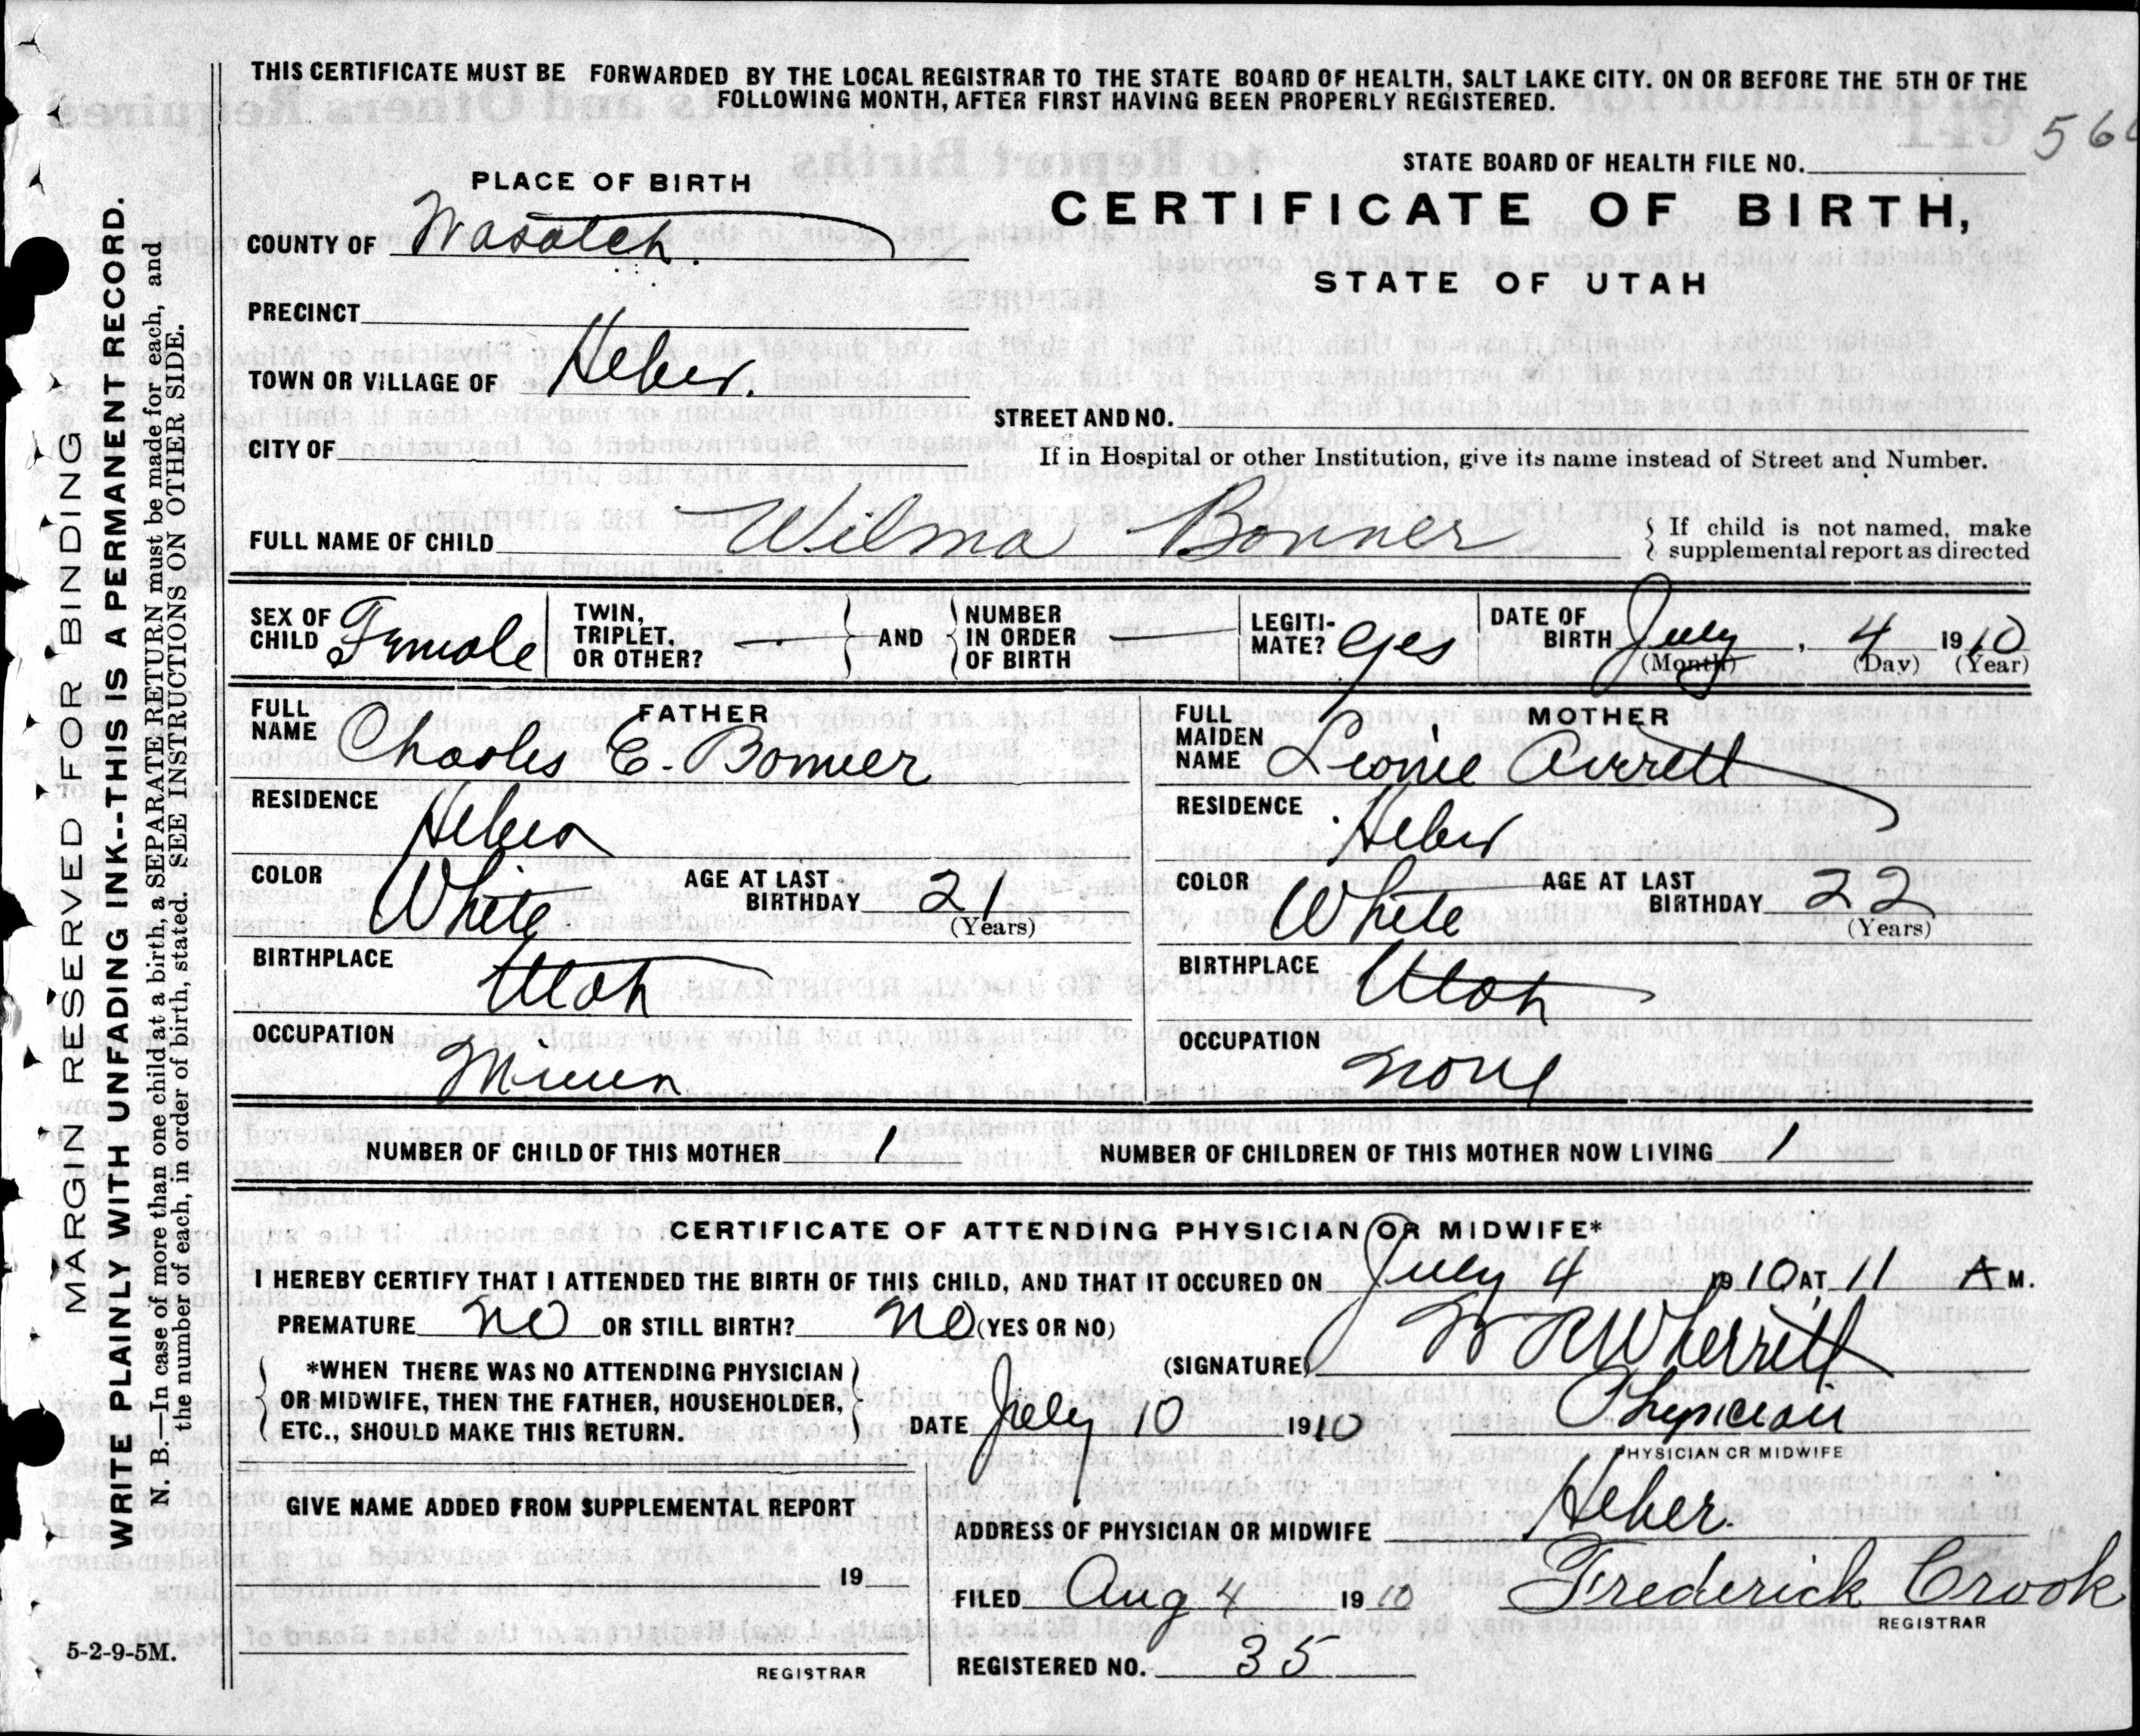 THIS CERTIFICATE MUST BE FORWARDED BY THE LOCAL REGISTRAR TO THE STATE BOARD OF HEALTH, SALT LAKE CITY. ON OR BEFORE THE 5TH OF THE
FOLLOWING MONTH, AFTER FIRST HAVING BEEN PROPERLY REGISTERED.
STATE BOARD OF HEALTH FILE NO.
PLACE OF BIRTH
CERTIFICATE OF BIRTH,
COUNTY OF Wasatch.
STATE OF UTAH
PRECINCT
TOWN OR VILLAGE OF Heber.
STREET AND NO.
CITY OF
If in Hospital or other Institution, give its name instead of Street and Number.
FULL NAME OF CHILD Wilma Bonner
If child is not named, make
supplemental report as directed
SEX OF CHILD Female
TWIN, TRIPLET, OR OTHER? -
AND
NUMBER IN ORDER OF BIRTH —
LEGITI-MATE? yes
DATE OF BIRTH July, 4 1910
(Month) (Day) (Year)
FATHER
FULL NAME Charles E. Bonner
RESIDENCE Heber
COLOR White
AGE AT LAST BIRTHDAY 21
(Years)
BIRTHPLACE Utah
OCCUPATION Miner
MOTHER
FULL MAIDEN NAME Averett
RESIDENCE Heber
COLOR White
AGE AT LAST BIRTHDAY 22
(Years)
BIRTHPLACE Utah
OCCUPATION none
NUMBER OF CHILD OF THIS MOTHER 1
NUMBER OF CHILDREN OF THIS MOTHER NOW LIVING 1
CERTIFICATE OF ATTENDING PHYSICIAN OR MIDWIFE*
I HEREBY CERTIFY THAT I ATTENDED THE BIRTH OF THIS CHILD, AND THAT IT OCCURED ON July 4 1910 AT 11 A M.
PREMATURE no OR STILL BIRTH? no (YES OR NO)
*WHEN THERE WAS NO ATTENDING PHYSICIAN
OR MIDWIFE, THEN THE FATHER, HOUSEHOLDER,
ETC., SHOULD MAKE THIS RETURN.
(SIGNATURE) Wherritt
DATE July 10 1910
Physician
PHYSICIAN OR MIDWIFE
GIVE NAME ADDED FROM SUPPLEMENTAL REPORT
19
REGISTRAR
ADDRESS OF PHYSICIAN OR MIDWIFE Heber.
FILED Aug 4 1910 Frederick Crook
REGISTRAR
REGISTERED NO. 35
5-2-9-5M.
MARGIN RESERVED FOR BINDING
WRITE PLAINLY WITH UNFADING INK--THIS IS A PERMANENT RECORD.
N. B.—In case of more than one child at a birth, a SEPARATE RETURN must be made for each, and
the number of each, in order of birth, stated. SEE INSTRUCTIONS ON OTHER SIDE.